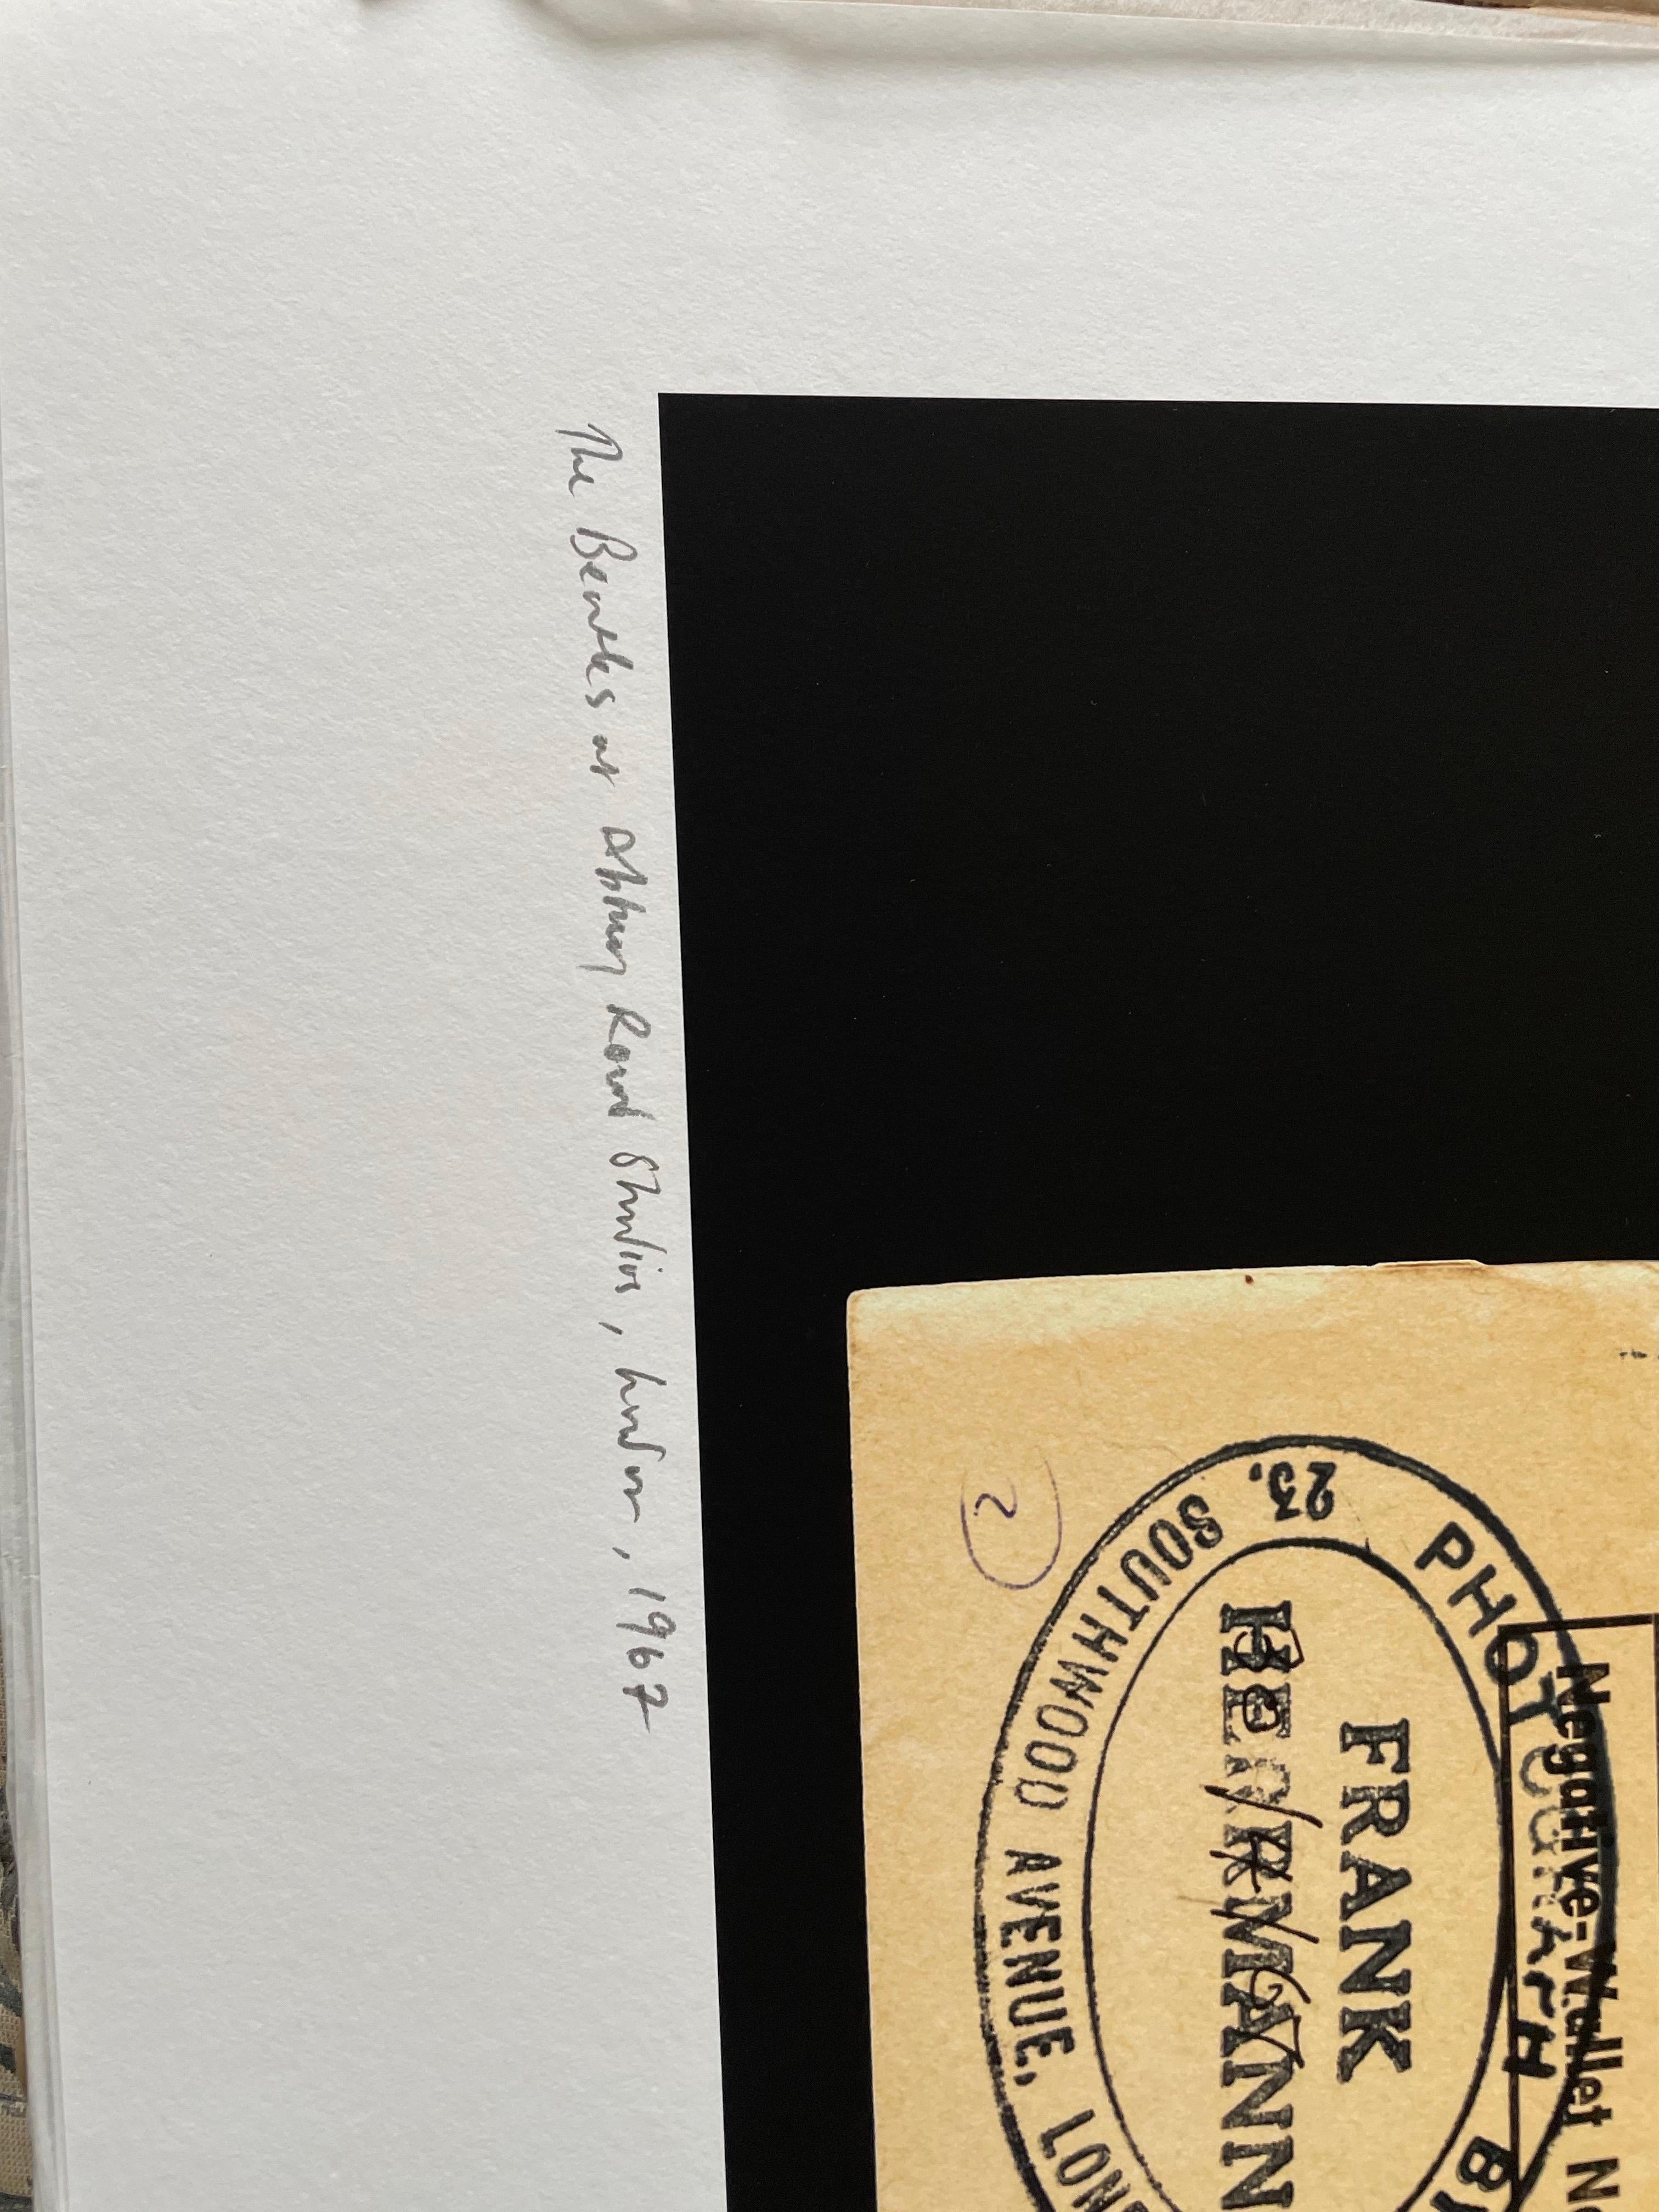 The Beatles at Abbey Road Studios, London, 1967
PHOTOGRAPH B
FRANK
HERRMANN
23, SOUTHWOOD AVENUE, LON
Negative-Wallet N
2